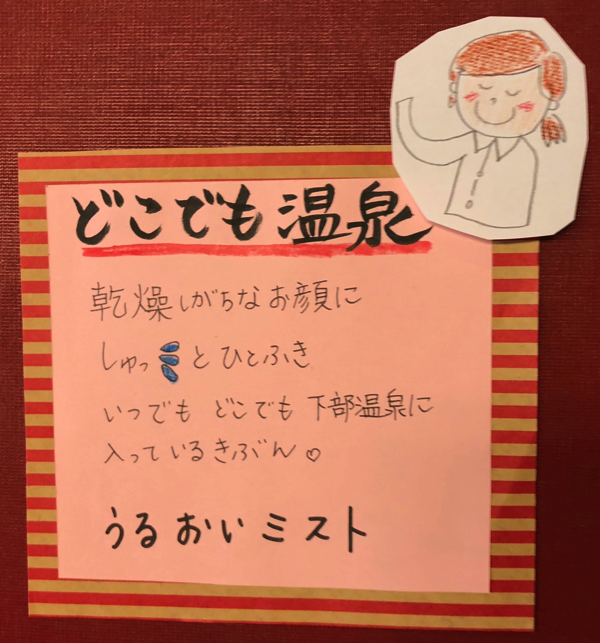 どこでも温泉
乾燥しがちなお顔に
しゅっとひとふき
いつでも どこでも 下部温泉に
入っているきぶん♡
うるおいミスト